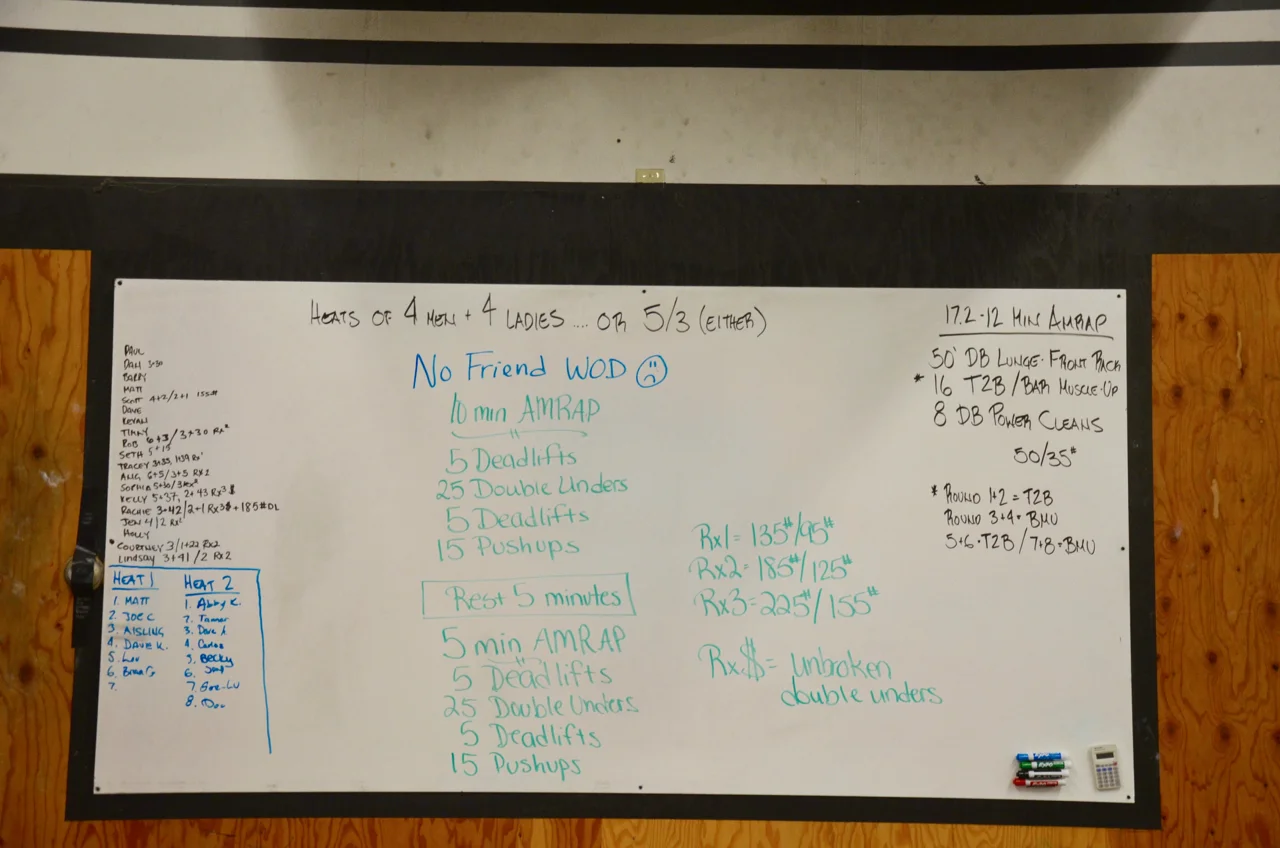 HEATS OF 4 MEN + 4 LADIES .... OR 5/3 (EITHER)
PAUL
DAN 3+30
BARRY
MATT
SCOTT 4+2/2+1 155#
DAVE
KEVAN
TIMMY
ROB 6+3/3+30 Rx2
SETH 5+15
TRACEY 3+35, 1+39 Rx1
ANG 6+5/3+5 RX2
SOPHIA 5+30/3
KELLY 5+37, 2+43 Rx3$
RACHIE 3+42/2+1 Rx3$+185#DL
JEN 4/2 Rx2
HOLLY
*COURTNEY 3/1+22 Rx2
LINDSAY 3+41/2 Rx2
HEAT 1
1. MATT
2. JOE C
3. AISLING
4. DAVE K.
5.
6.
7.
HEAT 2
1. Abby K.
2. Tanner
3. Dave
4. Carlos
5. BECKY
6.
7.
8.
No Friend WOD
10 min AMRAP
5 Deadlifts
25 Double Unders
5 Deadlifts
15 Pushups
Rest 5 minutes
5 min AMRAP
5 Deadlifts
25 Double Unders
5 Deadlifts
15 Pushups
Rx1 = 135#/95#
Rx2 = 185#/125#
Rx3 = 225#/155#
Rx$ = unbroken
double unders
17.2 - 12 MIN AMRAP
50' DB LUNGE - FRONT RACK
* 16 T2B / BAR MUSCLE-UP
8 DB POWER CLEANS
50/35#
* ROUND 1+2 = T2B
ROUND 3+4 = BMU
5+6 = T2B / 7+8 = BMU